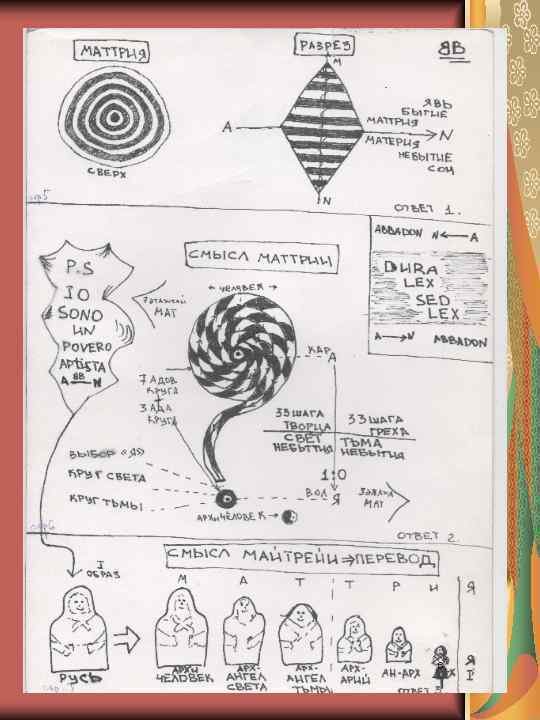 МАТТРИЯ
СВЕРХ
стр5
РАЗРЕЗ
ЯВ
M
A
N
N
ЯВЬ
БЫТИЕ
МАТТРИЯ
МАТЕРИЯ
НЕБЫТИЕ
СОН
ОТВЕТ 1.
P.S
IO
SONO
UN
POVERO
ЯВ
A N
СМЫСЛ МАТТРИИ
ЧЕЛОВЕК
МАТ
КАР
A
7 АДОВ
КРУГА
3 АДА
КРУГА
33 ШАГА
ТВОРЦА
33 ШАГА
ГРЕХА
СВЕТ
НЕБЫТИЯ
ТЬМА
НЕБЫТИЯ
1:0
ВОЛ
Я
МАТ
ВЫБОР "Я"
КРУГ СВЕТА
КРУГ ТЬМЫ
АРХИЧЕЛОВЕК
стр6
ABBADON N A
DURA
LEX
SED
LEX
A N ABBADON
ОТВЕТ 2.
СМЫСЛ МАЙТРЕЙИ ⇒ ПЕРЕВОД
I
ОБРАЗ
М А Т Т Р И Я
РУСЬ
АРХИ
ЧЕЛОВЕК
АРХ-
АНГЕЛ
СВЕТА
АРХ-
АНГЕЛ
ТЬМЫ
АРХ-
АРИЙ
АН-АРХ
Я
I
ОТВЕТ 3